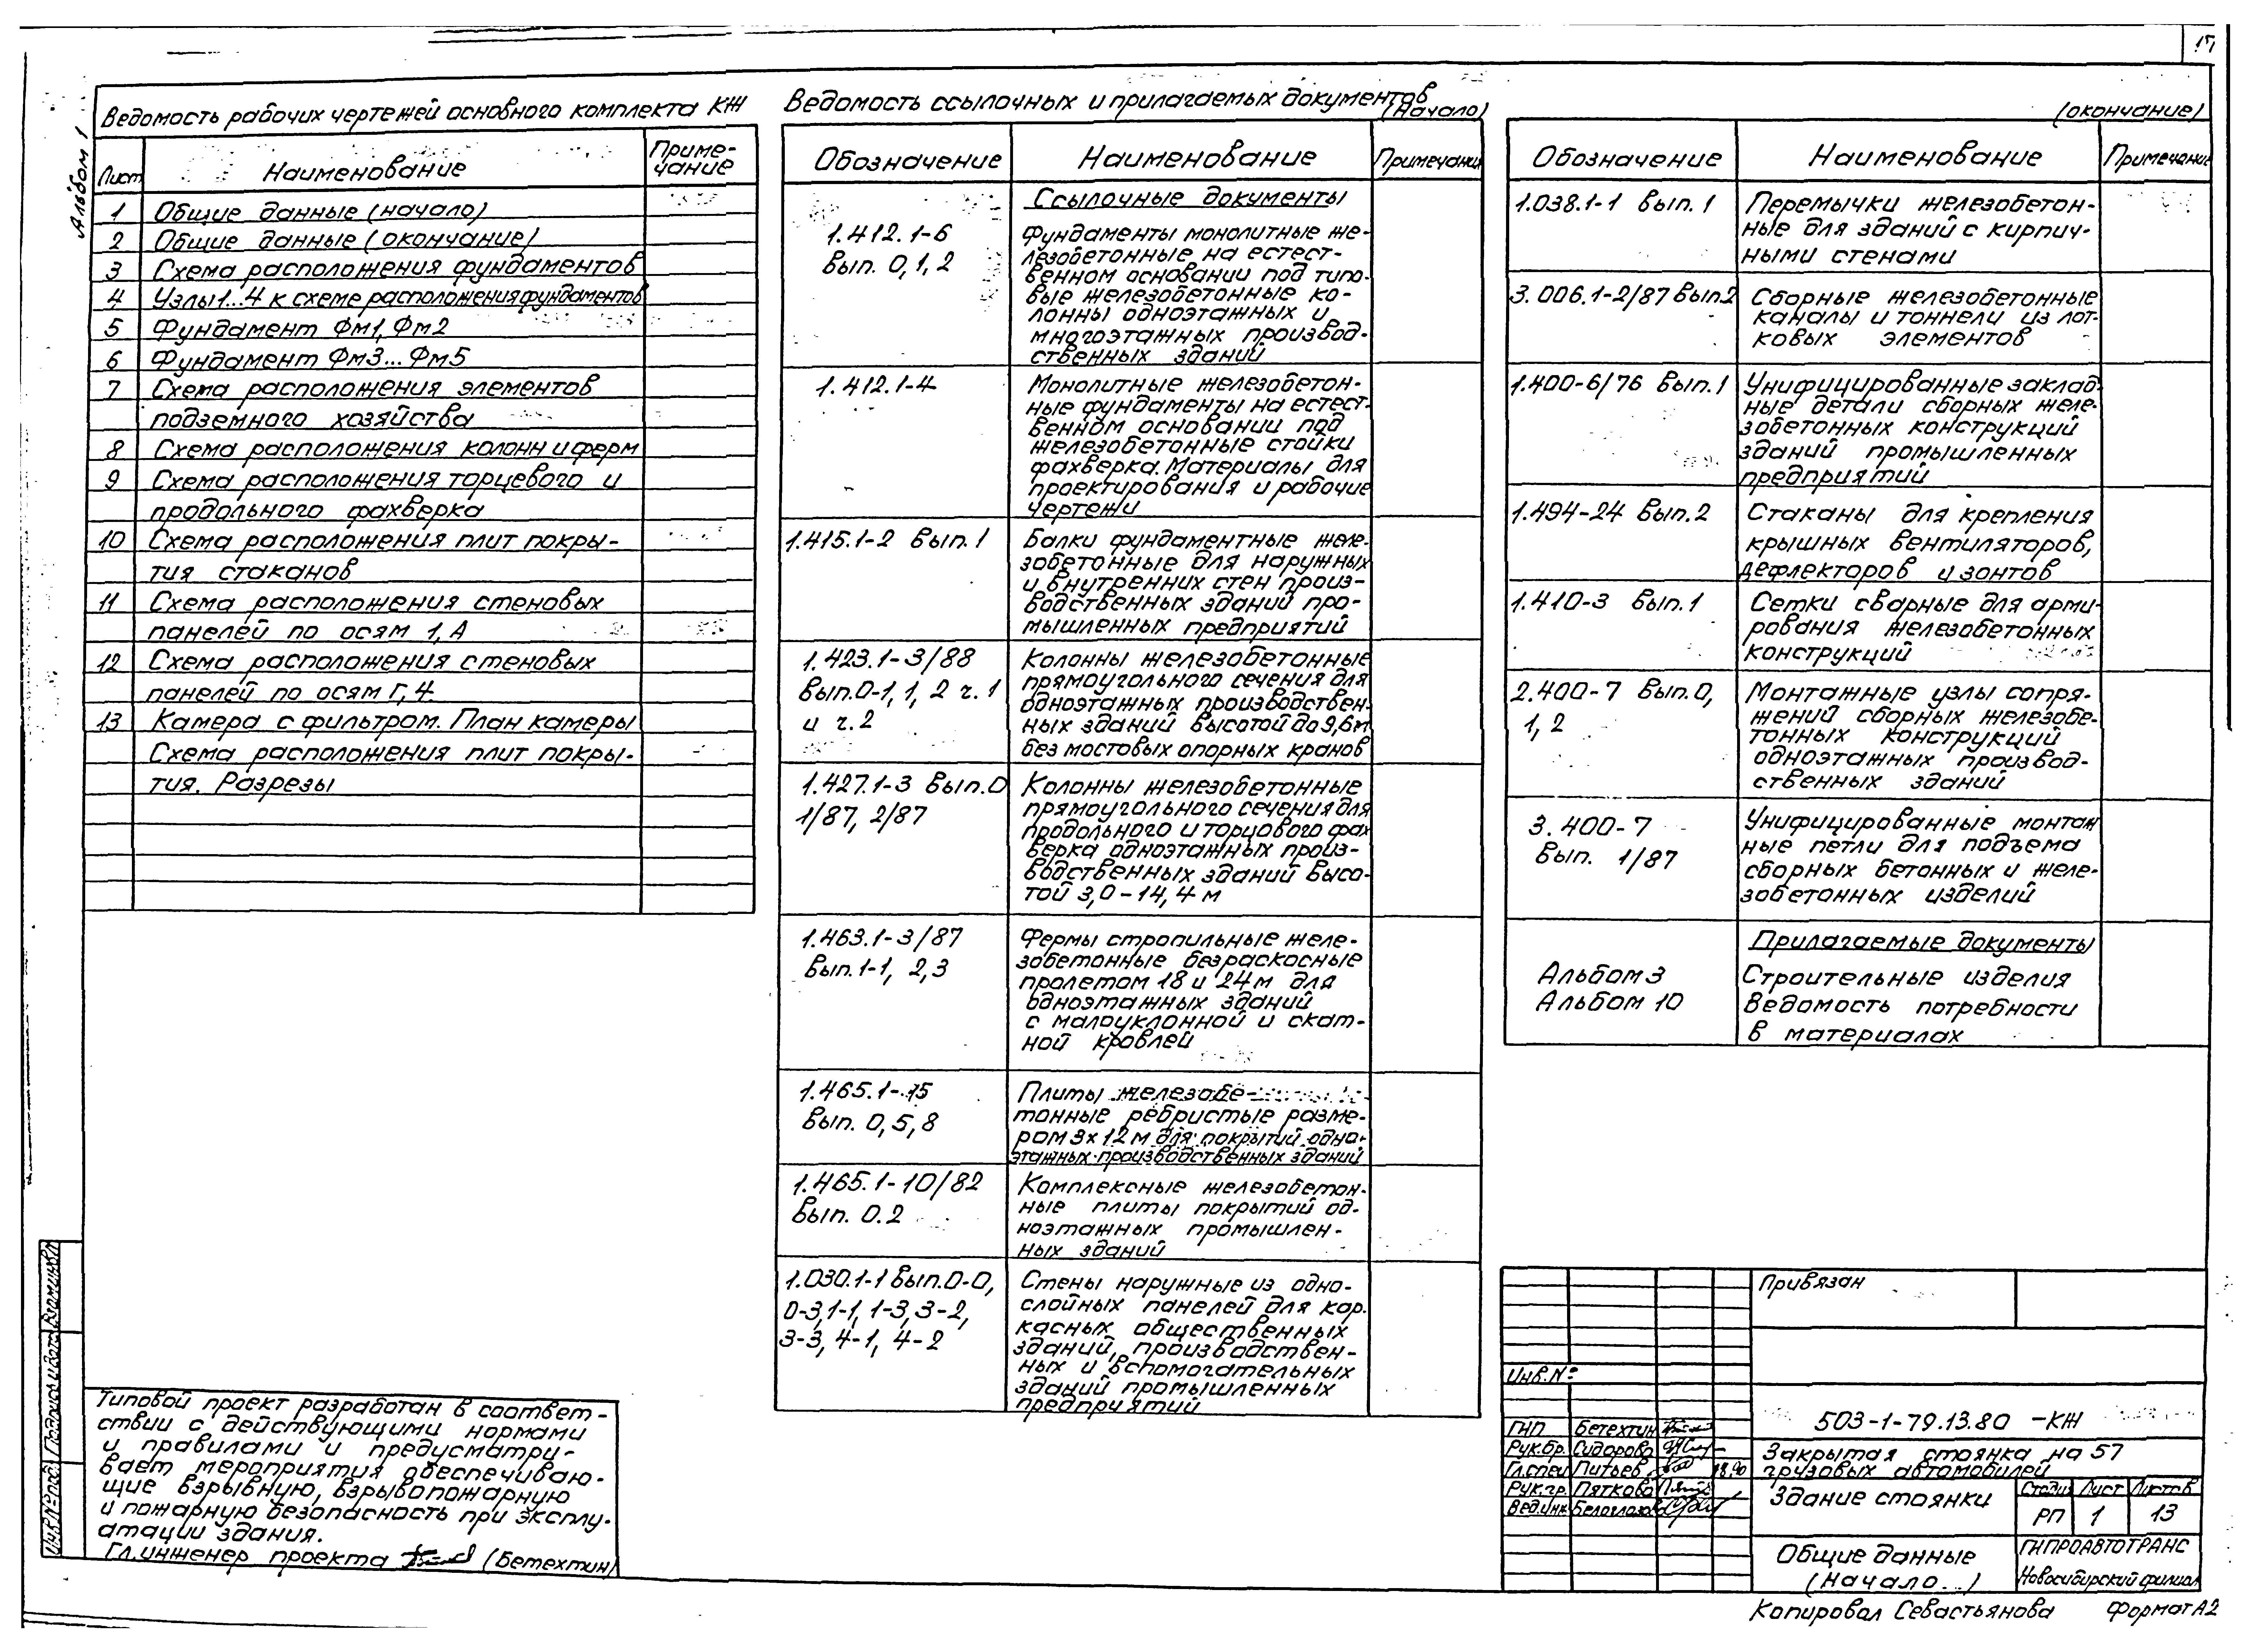 17
Альбом 1
Ведомость рабочих чертежей основного комплекта КЖ
Лист Наименование Приме-
чание
1 Общие данные (начало)
2 Общие данные (окончание)
3 Схема расположения фундаментов
4 Узлы 1...4 к схеме расположения фундаментов
5 Фундамент Фм1, Фм2
6 Фундамент Фм3... Фм5
7 Схема расположения элементов
подземного хозяйства
8 Схема расположения колонн и ферм
9 Схема расположения торцевого и
продольного фахверка
10 Схема расположения плит покры-
тия стаканов
11 Схема расположения стеновых
панелей по осям 1, А
12 Схема расположения стеновых
панелей по осям Г, 4
13 Камера с фильтром. План камеры
Схема расположения плит покры-
тия. Разрезы
Ведомость ссылочных и прилагаемых документов
(начало)
Обозначение Наименование Примечание
Ссылочные документы
1.412.1-6 Фундаменты монолитные же-
вып. 0, 1, 2 лезобетонные на естест-
венном основании под типо-
вые железобетонные ко-
лонны одноэтажных и
многоэтажных производ-
ственных зданий
1.412.1-4 Монолитные железобетон-
ные фундаменты на естест-
венном основании под
железобетонные стойки
фахверка. Материалы для
проектирования и рабочие
чертежи
1.415.1-2 вып. 1 Балки фундаментные желе-
зобетонные для наружных
и внутренних стен произ-
водственных зданий про-
мышленных предприятий
1.423.1-3/88 Колонны железобетонные
вып.0-1, 1, 2 ч. 1 прямоугольного сечения для
и ч.2 одноэтажных производствен-
ных зданий высотой до 9,6 м
без мостовых опорных кранов
1.427.1-3 вып.0 Колонны железобетонные
1/87, 2/87 прямоугольного сечения для
продольного и торцового фах
верка одноэтажных произ-
водственных зданий высо-
той 3,0-14,4 м
1.463.1-3/87 Фермы стропильные желе-
вып.1-1, 2,3 зобетонные безраскосные
пролетом 18 и 24 м для
одноэтажных зданий
с малоуклонной и скат-
ной кровлей
1.465.1-15 Плиты железобе-
вып. 0, 5, 8 тонные ребристые разме-
ром 3х12 м для покрытий одно-
этажных производственных зданий
1.465.1-10/82 Комплексные железобетон-
вып. 0.2 ные плиты покрытий од-
ноэтажных промышлен-
ных зданий
1.030.1-1 вып.0-0, Стены наружные из одно-
0-3, 1-1, 1-3, 3-2, слойных панелей для кар-
3-3, 4-1, 4-2 касных общественных
зданий, производствен-
ных и вспомогательных
зданий промышленных
предприятий
(окончание)
Обозначение Наименование Примечание
1.038.1-1 вып. 1 Перемычки железобетон-
ные для зданий с кирпич-
ными стенами
3.006.1-2/87 вып2 Сборные железобетонные
каналы и тоннели из лот-
ковых элементов
1.400-6/76 вып. 1 Унифицированные заклад-
ные детали сборных желе-
зобетонных конструкций
зданий промышленных
предприятий
1.494-24 вып. 2 Стаканы для крепления
крышных вентиляторов,
дефлекторов и зонтов
1.410-3 вып. 1 Сетки сварные для арми-
рования железобетонных
конструкций
2.400-7 вып. 0, Монтажные узлы сопря-
1, 2 жений сборных железобе-
тонных конструкций
одноэтажных производ-
ственных зданий
3.400-7 Унифицированные монтаж
вып. 1/87 ные петли для подъема
сборных бетонных и желе-
зобетонных изделий
Прилагаемые документы
Альбом 3 Строительные изделия
Альбом 10 Ведомость потребности
в материалах
Типовой проект разработан в соответ-
ствии с действующими нормами
и правилами и предусматри-
вает мероприятия обеспечиваю-
щие взрывную, взрывопожарную
и пожарную безопасность при эксплу-
атации здания.
Гл. инженер проекта (Бетехтин)
Инв.№ подл. Подпись и дата Взам.инв.№
Привязан
Инв.№:
503-1-79.13.80 -КЖ
ГИП Бетехтин
Рук.бр. Сидорова
Гл.спец Питьев
Рук.гр. Пяткова
Вед.инж. Белоглазова
Закрытая стоянка на 57
грузовых автомобилей
Здание стоянки
Стадия Лист Листов
РП 1 13
Общие данные
(Начало...)
ГИПРОАВТОТРАНС
Новосибирский филиал
Копировал Севастьянова Формат А2